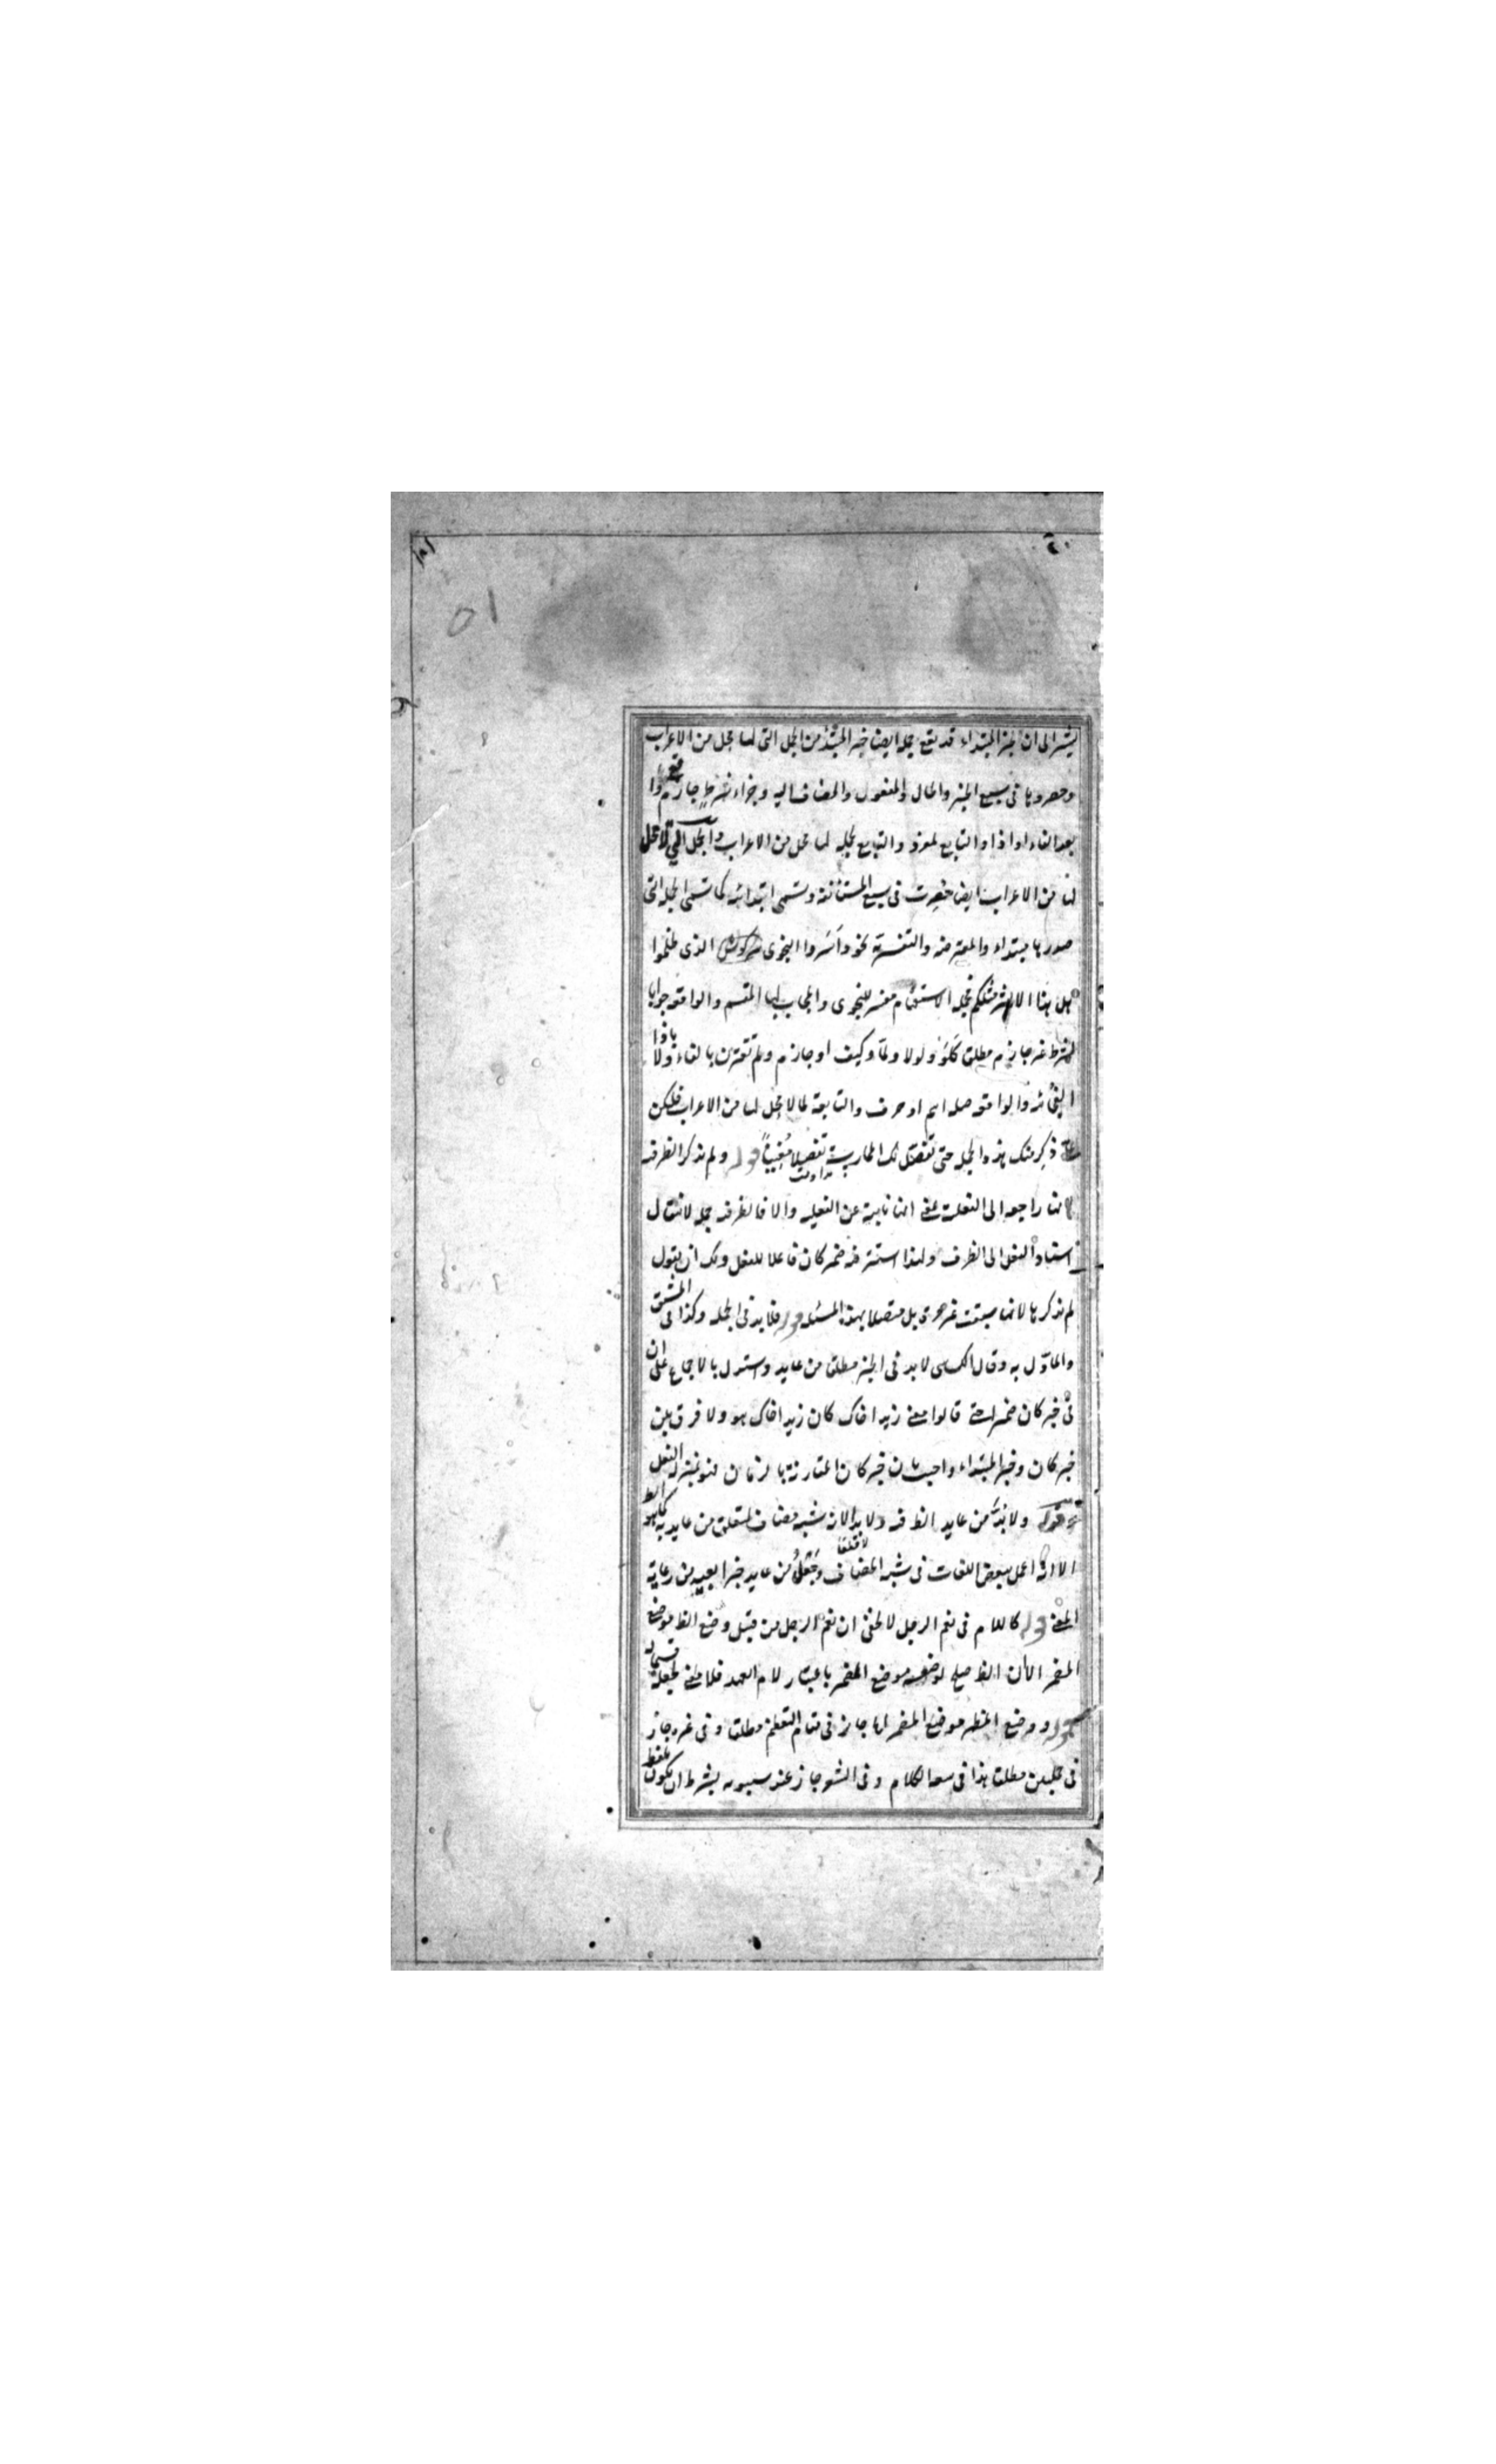 يشير الى ان خبر المبتداء قد يقع جملة ايضا خبر المبتدأ من الجمل التى لها محل من الاعراب
وحصروها فى سبع الخبر والحال والمفعول والمضاف اليه وجزاء شرط جازم واقع
بعد الفاء او اذا والتابع لمفرد والتابع لجملة لها محل من الاعراب والجمل التى لا محل
لها من الاعراب ايضا حصرت فى سبع المستأنفة وتسمى ابتدائية كما تسمى الجملة التى
صدرها مبتداء والمعترضة والتفسيرية نحو وأسروا النجوى الذى ظلموا
هل هذا الا بشر مثلكم فجملة الاستفهام مفسر للنجوى والمجاب بها القسم والواقعة جوابا
لشرط غير جازم مطلق كلو ولولا ولما وكيف او جازم ولم تقترن بالفاء ولا باذا
الفجائية والواقعة صلة اسم او حرف والتابعة لما لا محل لها من الاعراب فليكن
ذكر منك هذه الجملة حتى تفصل لك الماربة تفصيلا مغنيا قوله ولم يذكر الظرفية
لانها راجعة الى الفعلية يعنى انها نايبة عن الفعلية والا فالظرفية جملة لانتقال
اسناد الفعل الى الظرف ولهذا استتر فيه ضمير كان فاعلا للفعل ولك ان تقول
لم يذكرها لانها سبقت غير مرة بل متصلا بهذه المسئلة قوله فلا بد فى الجملة وكذا فى المشتق
والمأول به وقال الكسى لا بد فى الخبر مطلقا من عايد واستدل بالاجماع على ان
فى خبر كان ضميرا حتى قالوا معنى زيد اخاك كان زيد اخاك هو ولا فرق بين
خبر كان وخبر المبتداء واجيب بان خبر كان المقارنة بالزمان فهو بمنزلة الفعل
قوله ولا بد من عايد الظ فيه ولا بد الا ان شبه مضاف لتعلق من عايد به كما هو الظ
الا انه اعمل ببعض اللغات فى شبه المضاف وجعل من عايد خبرا بعيد من رعاية
المعنى قوله كاللام فى نعم الرجل لا يخفى ان نعم الرجل من قبيل وضع الظ موضع
المضمر الا ان الظ صلح لوضعه موضع المضمر باعتبار لام العهد فلا معنى لجعله قسيما له
قوله ووضع المظهر موضع المضمر انما جاز فى مقام التعظيم مطلقا وفى غيره جاز
فى جملتين مطلقا هذا فى سعة الكلام وفى الشعر جاز عند سيبويه بشرط ان يكون بلفظ